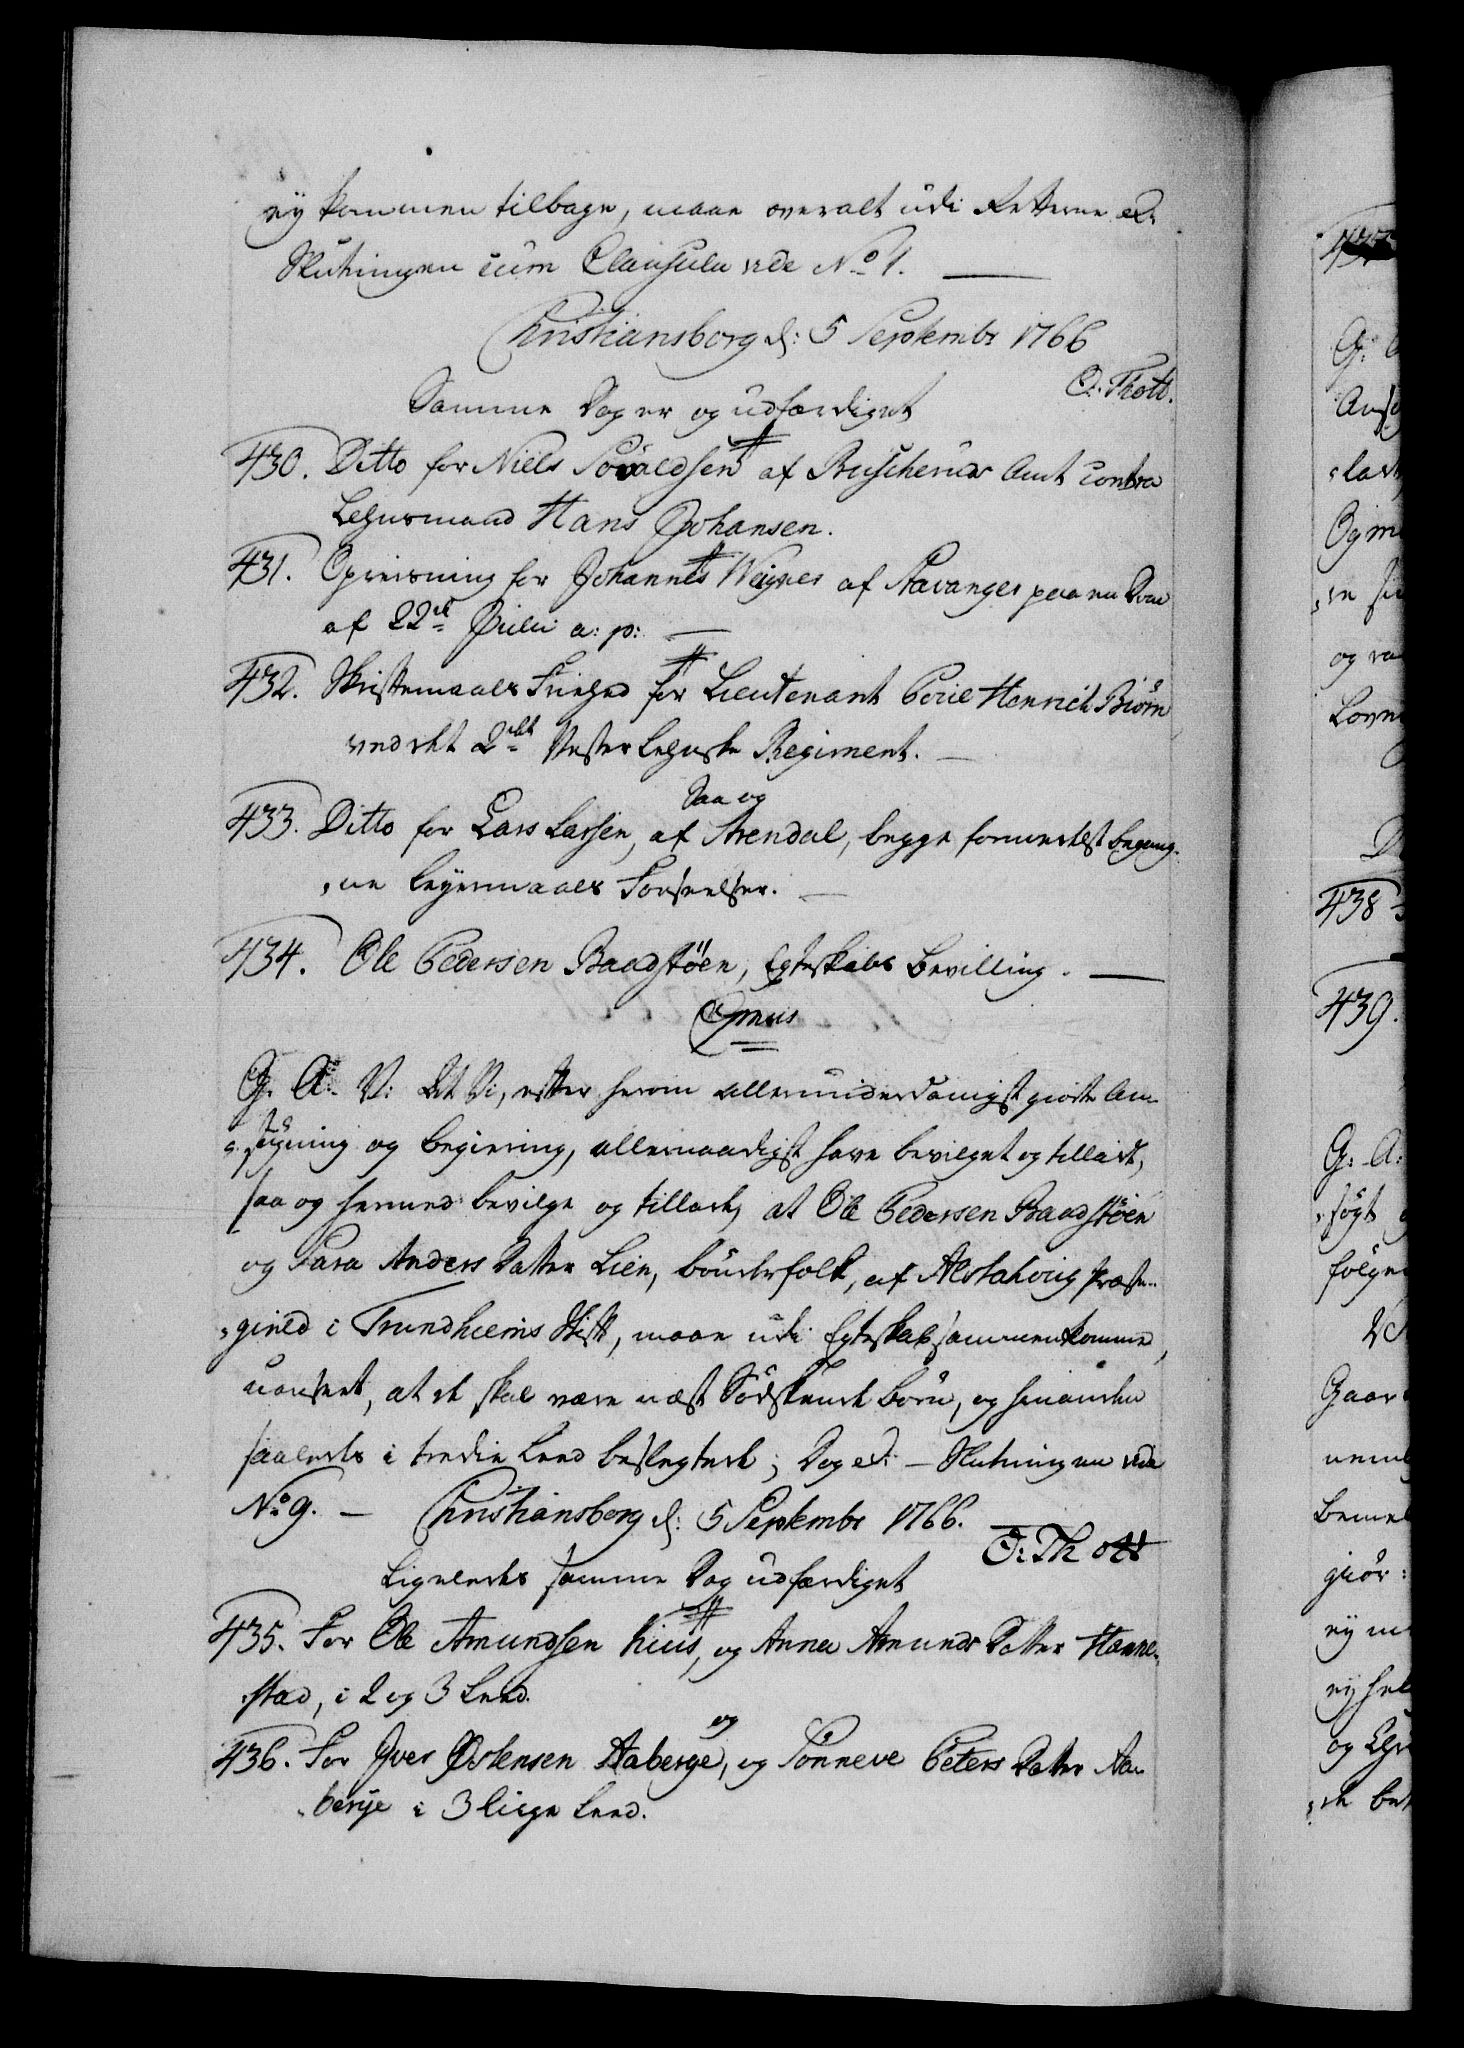 ey kommen tilbage, maae overalt udi Retterne etc
Slutningen cum Clausula vide No 1.
Christiansborg d: 5 Septembr 1766
O. Thott.
Samme Dag er og udfærdiget
430. Ditto for Niels Povaldsen af Buscherud Amt contra
Lehnsmand Hans Johansen.
431. Opreisning for Johannes Wegner af Stavanger paa en Dom
af 22de Julii a: p:
432. Skriftemaals Friehed for Lieutenant Peric Henrich Biørn
ved det 2det Vesterlehnske Regiment.
433. Ditto for Lars Larsen, Saa og af Arendal, begge formedelst begang-
ne Leyermaals Forseelser.
434. Ole Pedersen Baadstøen, Egteskabs Bevilling.
Gienus
G. A: V: At Vi, efter herom allerunderdanigst giorte An-
søgning og Begiering, allernaadigst have bevilget og tilladt,
saa og hermed bevilge og tillade, at Ole Pedersen Baadstøen
og Sara Anders Datter Lien, bønderfolk, af Alstahoug Præste-
gield i Trundhiems Stift, maae udi Egteskab sammenkomme,
uanseet, at de skal være næst Sødskende børn, og hinanden
saaledes i tredie Leed beslegtede; Dog etc: - Slutningen vide
No 9. - Christiansborg d: 5 Septembr 1766.
O: Thott
Ligeledes samme Dag udfærdiget
435. For Ole Amundsen Huus, og Anna Amunds Datter Hanne-
stad, i 2 og 3 Leed.
436. For Iver Østensen Aaberge, og Sønneve Peters Datter Aa-
berge i 3 liige Leed.